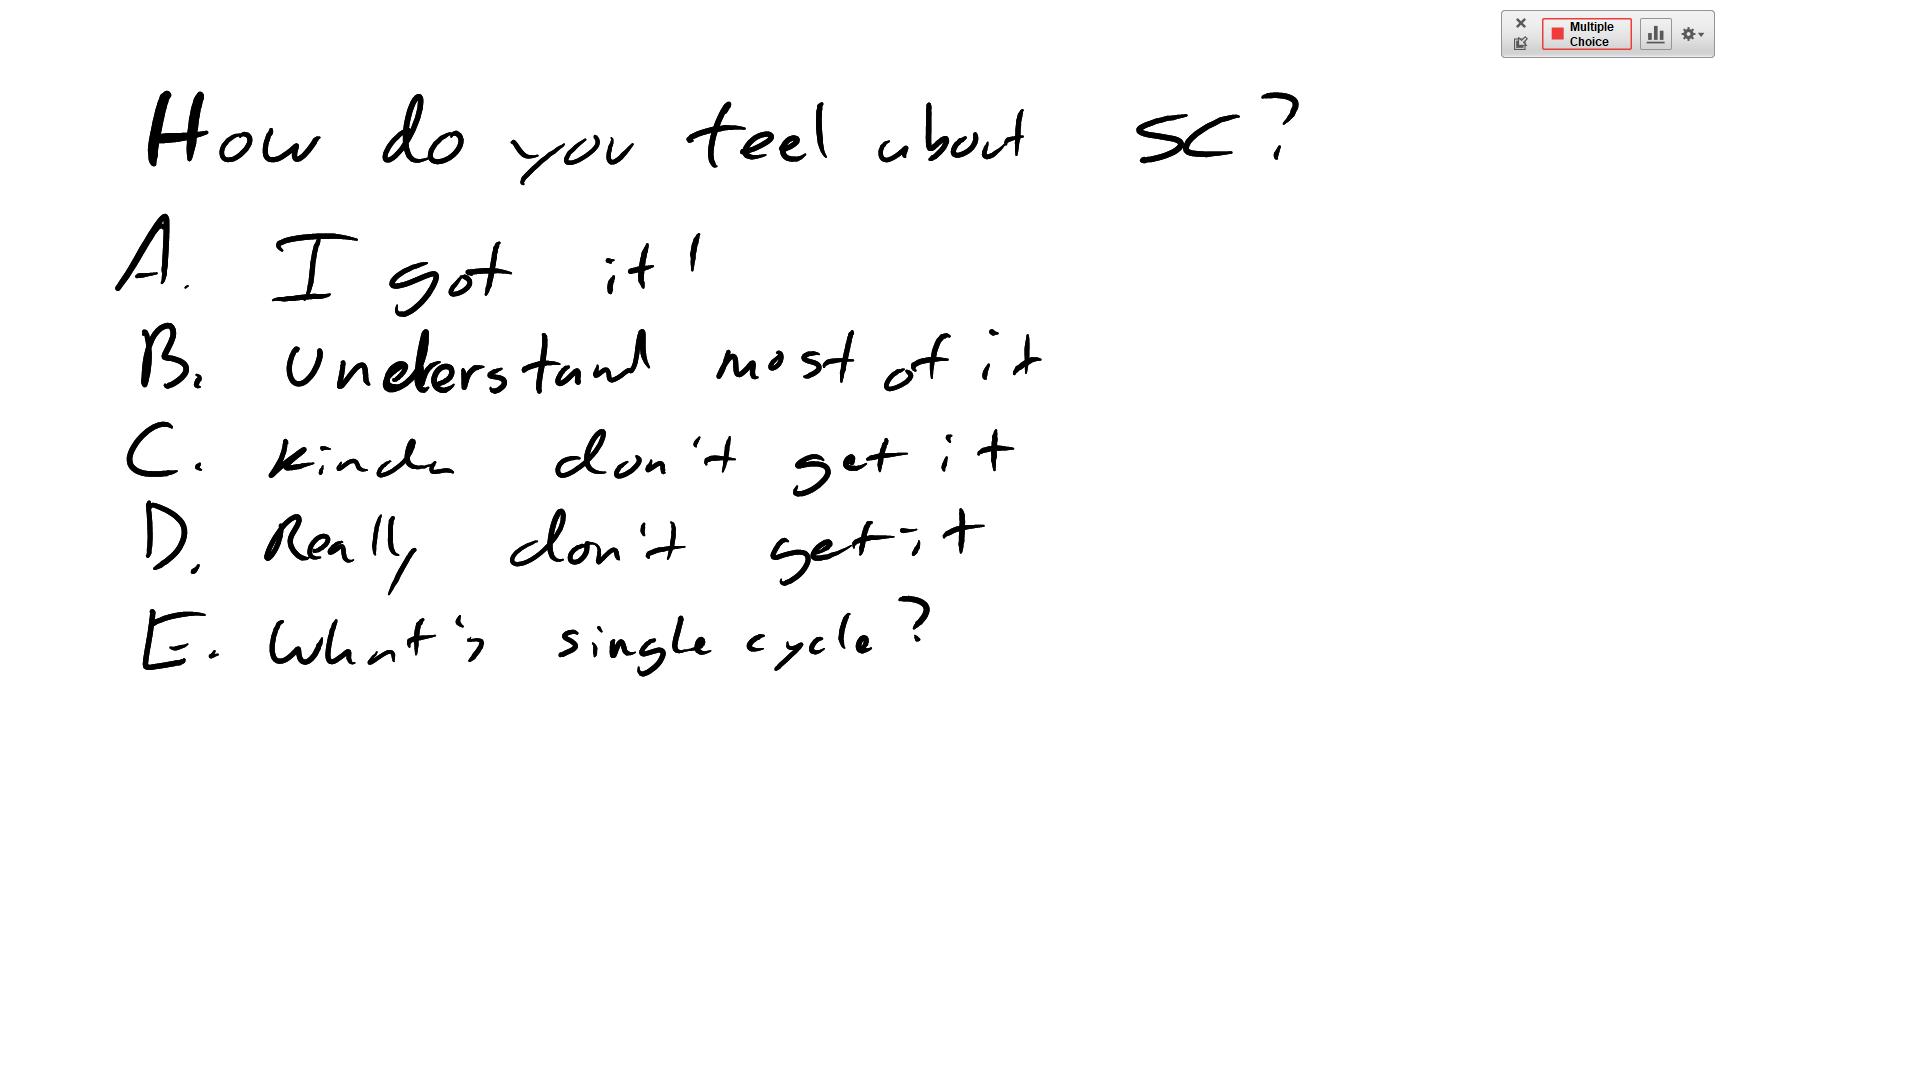 Multiple
Choice
How do you feel about SC?
A. I got it!
B. Understand most of it
C. Kinda don't get it
D. Really don't get it
E. What's single cycle?